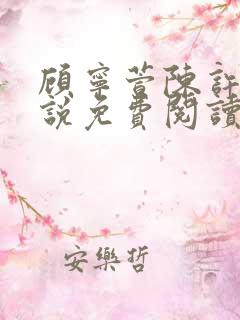 顾寧萱陳許
說免費閱讀
安樂哲